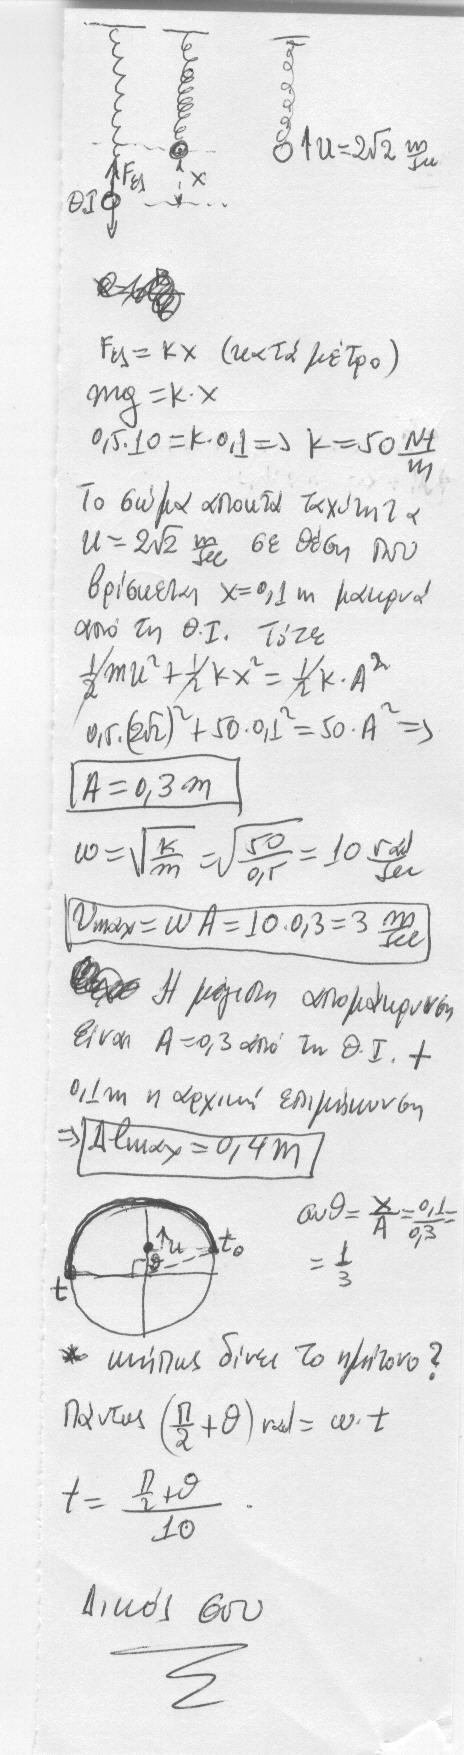 u=2√2 m/sec
Fελ
x
ΘΙ
Fελ = kx (κατά μέτρο)
mg = k·x
0,5·10=k·0,1 => k=50 Nt/m
Το σώμα αποκτά ταχύτητα
u=2√2 m/sec σε θέση που
βρίσκεται x=0,1m μακρυά
από τη Θ.Ι. Τότε
1/2 mu² + 1/2 kx² = 1/2 k·A²
0,5·(2√2)² + 50·0,1² = 50·A² =>
A = 0,3 m
ω = √(k/m) = √(50/0,5) = 10 rad/sec
Vmax = ωA = 10·0,3 = 3 m/sec
Η μέγιστη απομάκρυνση
είναι A=0,3 από τη Θ.Ι. +
0,1m η αρχική επιμήκυνση
=> Δlmax = 0,4m
συνθ = x/A = 0,1/0,3 =
= 1/3
u
t₀
θ
t
* μήπως δίνει το ημίτονο?
Πάντως (π/2 + θ) rad = ω·t
t = (π/2 + θ)/10 .
Δικός σου